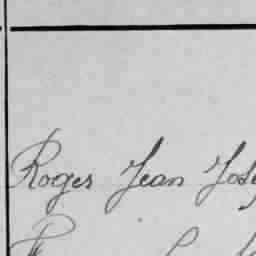 Roger Jean Jos